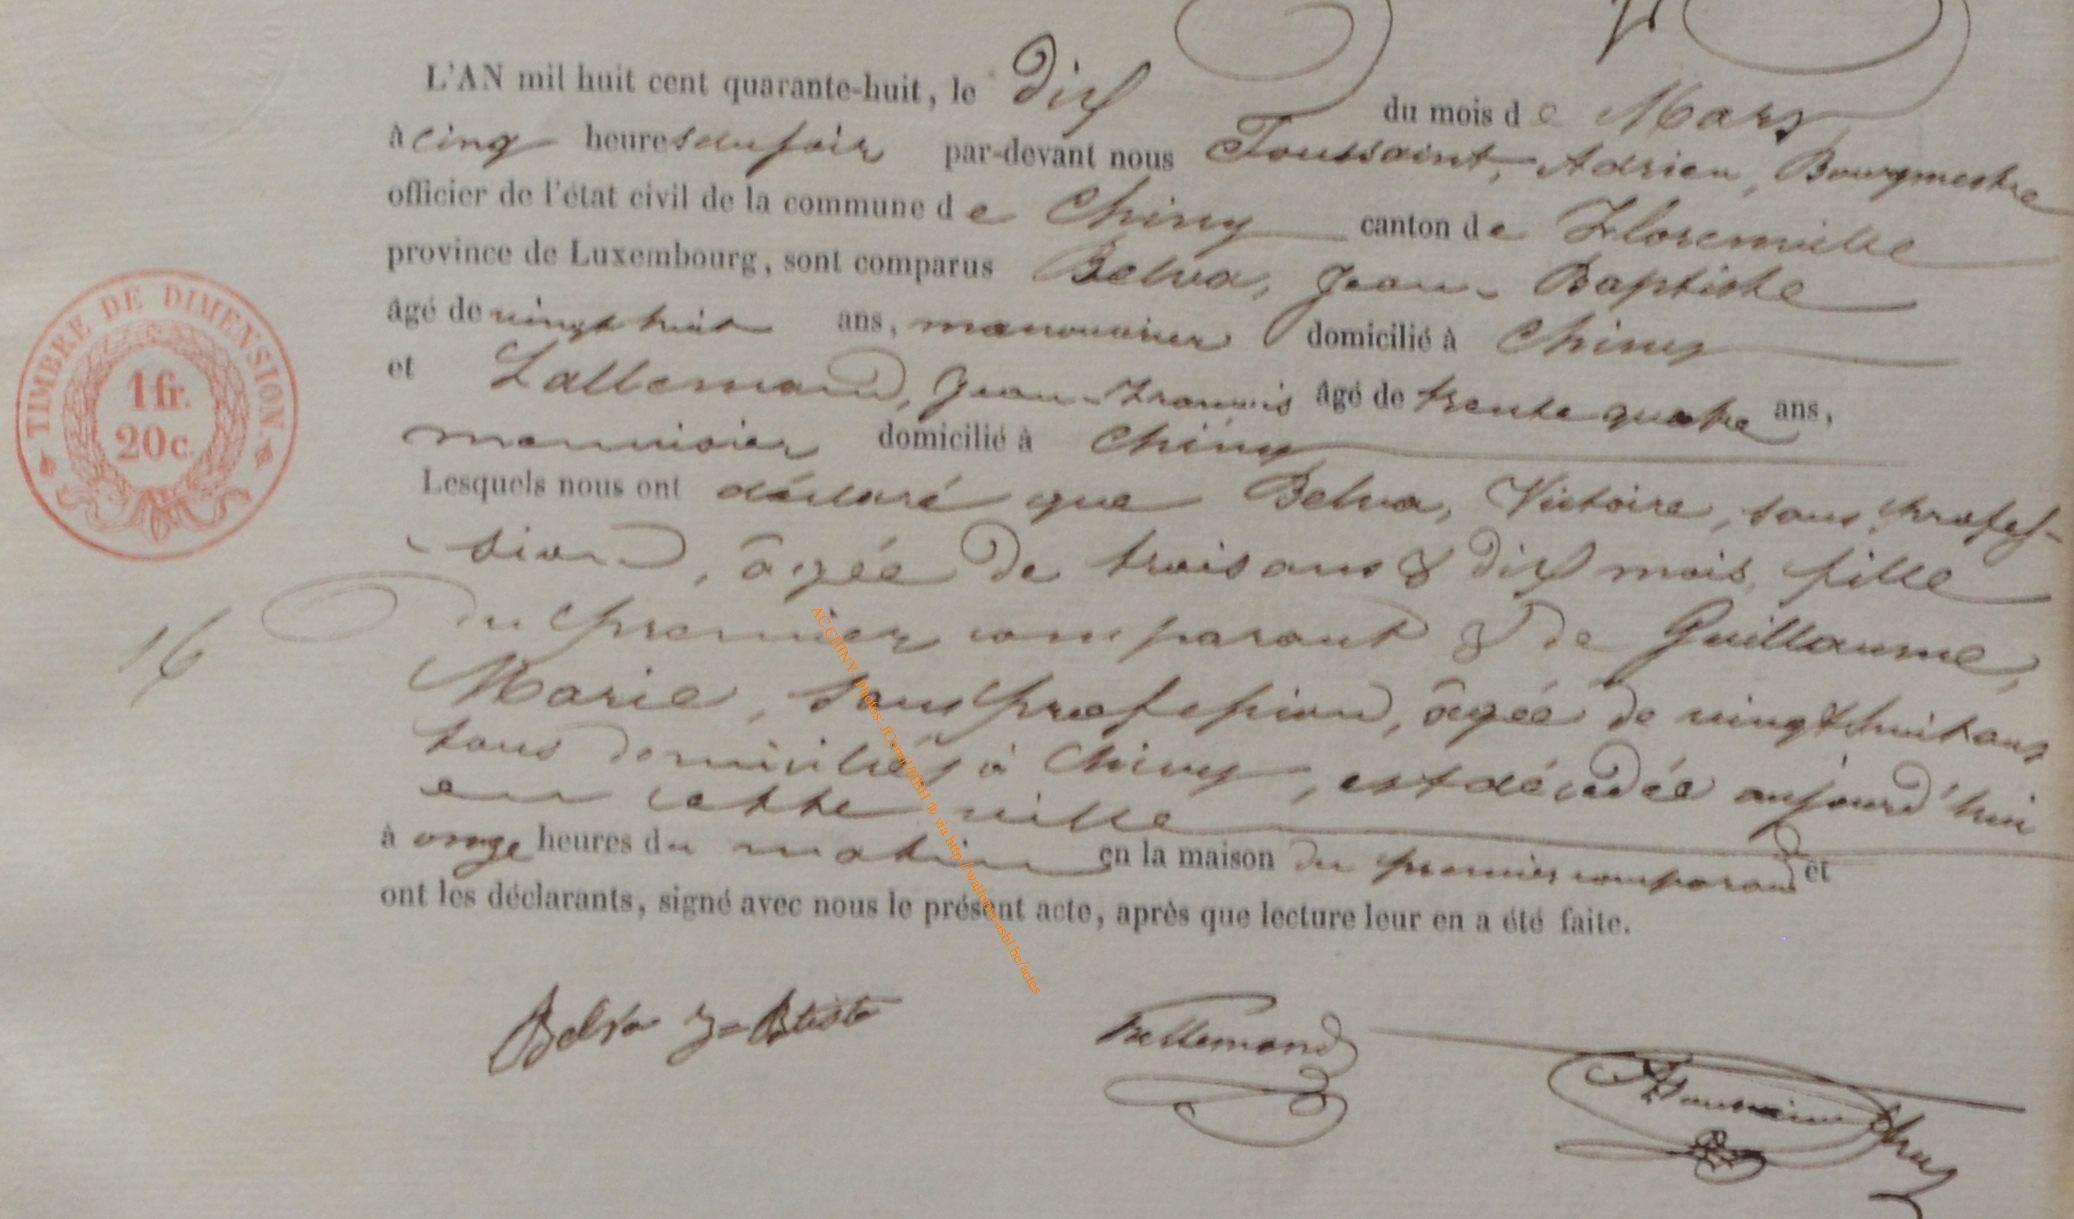 L'AN mil huit cent quarante-huit, le dix du mois de Mars
à cinq heures du soir par-devant nous Toussaint, Adrien, Bourgmestre
officier de l'état civil de la commune de Chiny canton de Florenville
province de Luxembourg, sont comparus Belva, Jean-Baptiste
âgé de vingt huit ans, manouvrier domicilié à Chiny
et Lallemand, Jean-François âgé de trente quatre ans,
menuisier domicilié à Chiny
Lesquels nous ont déclaré que Belva, Victoire, sans profes-
sion, âgée de trois ans & dix mois, fille
du premier comparant & de Guillaume,
Marie, sans profession, âgée de vingt huit ans
tous domiciliés à Chiny, est décédée aujourd'hui
en cette ville
à onze heures du matin en la maison du premier comparant et
ont les déclarants, signé avec nous le présent acte, après que lecture leur en a été faite.
TIMBRE DE DIMENSION.
1 fr.
20 c.
16
ACCHINY
via http://wallonia-asbl.be/actes
Belva J=Btiste
Lallemand
AToussaint